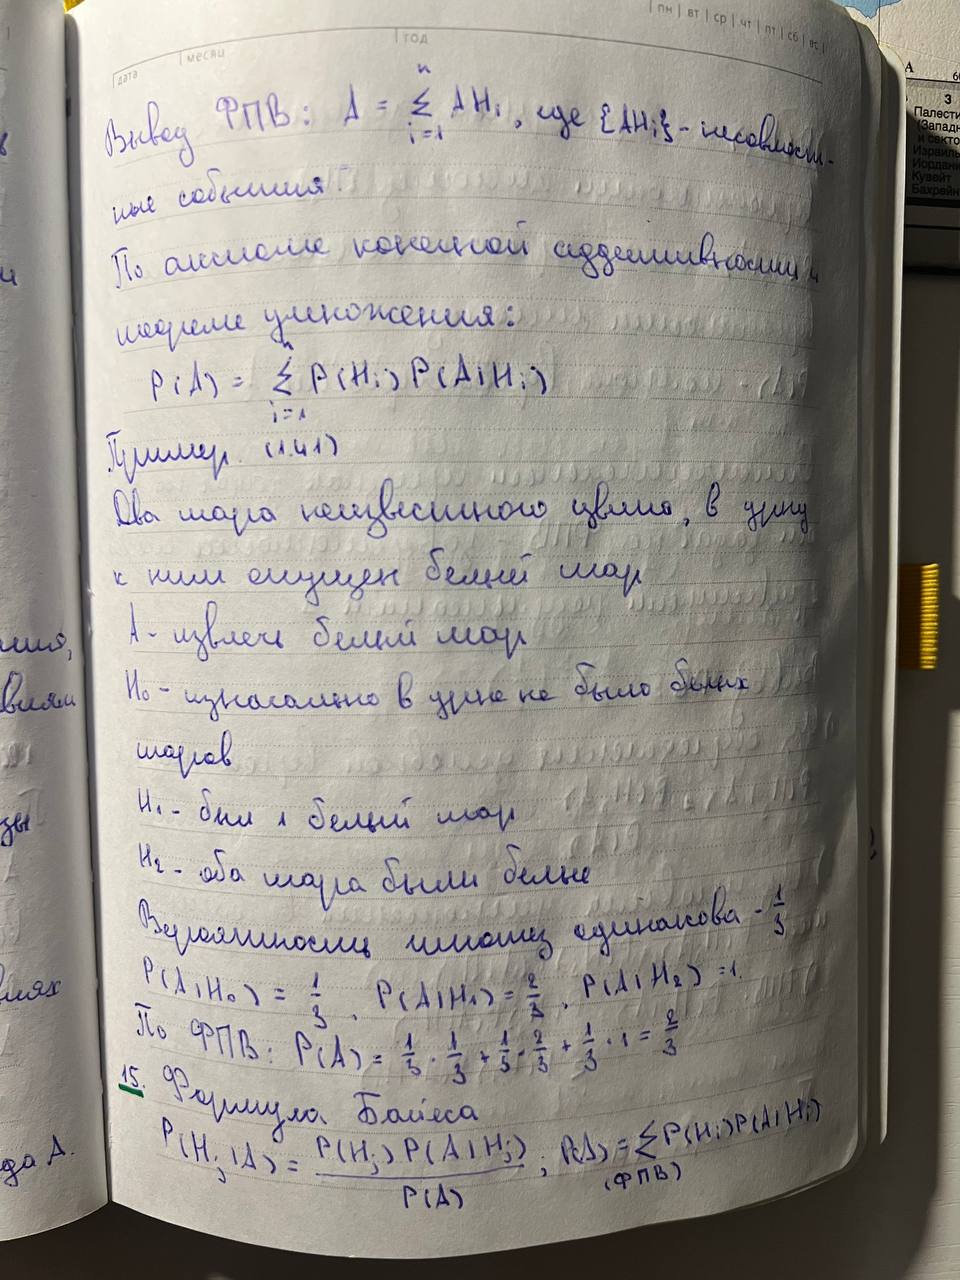 пн | вт | ср | чт | пт | сб | вс
дата | месяц | год
Вывод ФПВ: A = \sum_{i=1}^{n} AH_i, где {AH_i} - несовмест-
ные события
По аксиоме конечной аддитивности и
теореме умножения:
P(A) = \sum_{i=1}^{n} P(H_i) P(A|H_i)
Пример. (1.41)
Два шара неизвестного цвета, в урну
к ним опущен белый шар
A - извлечь белый шар
H₀ - изначально в урне не было белых
шаров
H₁ - был 1 белый шар
H₂ - оба шара были белые
Вероятность гипотез одинакова - 1/3
P(A|H₀) = 1/3, P(A|H₁) = 2/3, P(A|H₂) = 1.
По ФПВ: P(A) = 1/3 · 1/3 + 1/3 · 2/3 + 1/3 · 1 = 2/3
15. Формула Байеса
P(H_j|A) = P(H_j) P(A|H_j) / P(A) ; P(A) = ∑ P(H_i) P(A|H_i)
(ФПВ)
ния,
да A.
A
3
Палести
(Запад
и секто
Израиль
Иордани
Кувейт
Бахрейн